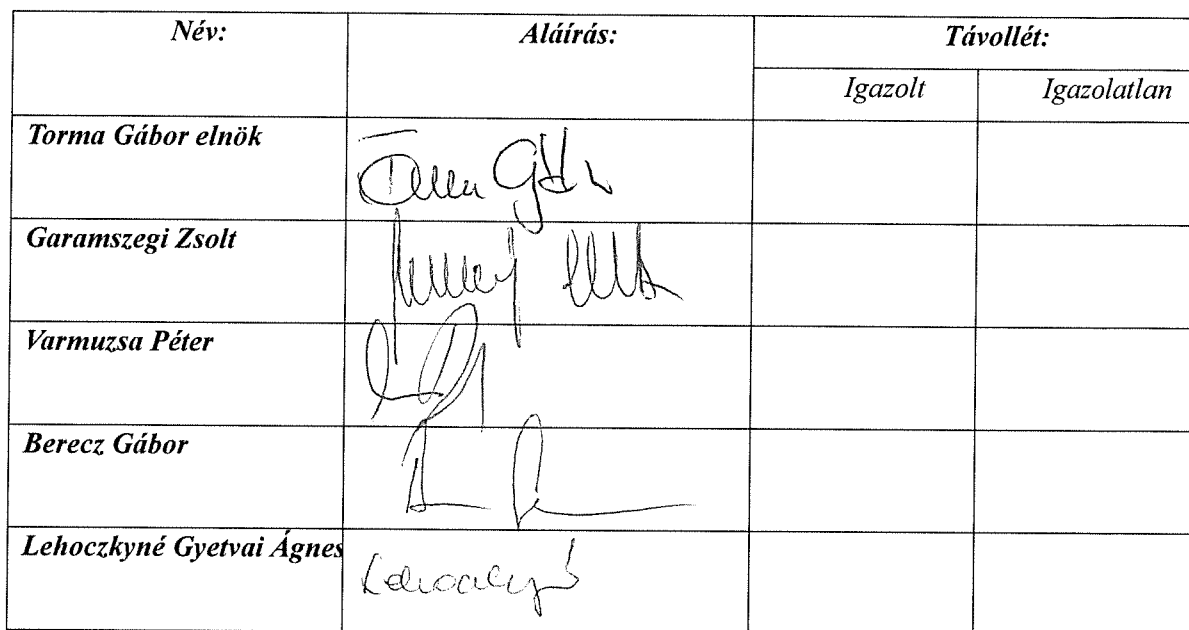 Név: Aláírás: Távollét:
Igazolt Igazolatlan
Torma Gábor elnök
Garamszegi Zsolt
Varmuzsa Péter
Berecz Gábor
Lehoczkyné Gyetvai Ágnes